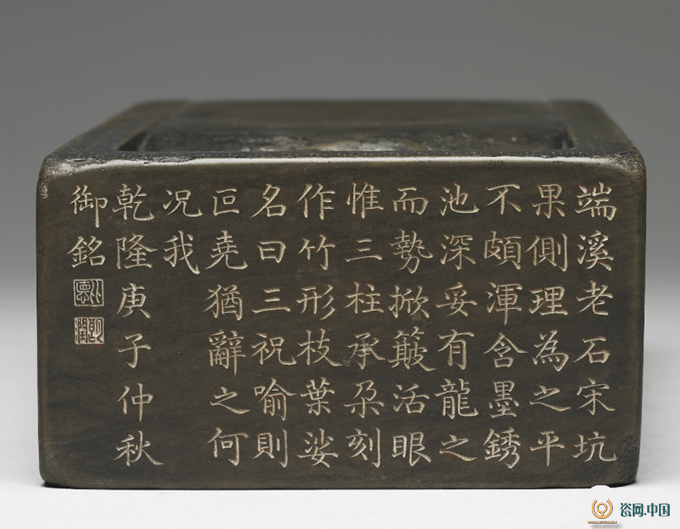 端溪老石宋坑
果側理為之平
不頗渾含墨銹
池深妥有龍之
而勢掀簸活眼
惟三柱承朵刻
作竹形枝葉娑
名曰三祝喻則
叵堯猶辭之何
况我
乾隆庚子仲秋
御銘
比德
朗潤
瓷网.中国